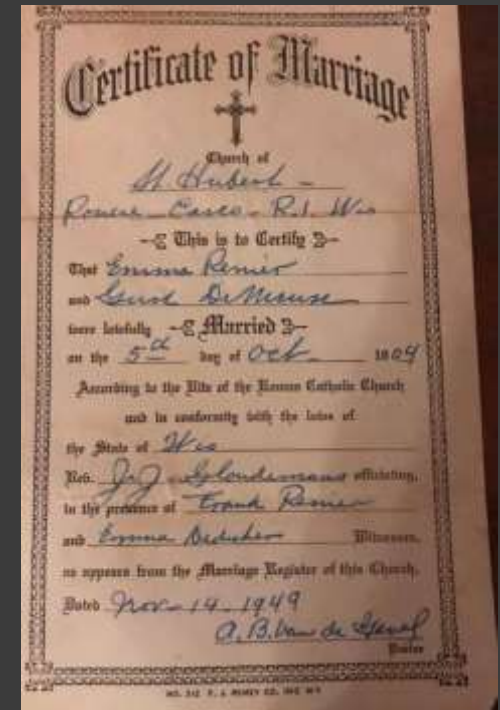 Certificate of Marriage
Church of
St Hubert -
Rosiere - Casco - R.1. Wis
This is to Certify
That Emma Renier
and Gust DeMeuse
were lawfully Married
on the 5th day of Oct 1904
According to the Rite of the Roman Catholic Church
and in conformity with the laws of
the State of Wis
Rev. J.J. Gloudemans officiating,
in the presence of Frank Renier
and Emma Witnesses,
as appears from the Marriage Register of this Church.
Dated Nov - 14 - 1949
A. B. Van de
Pastor